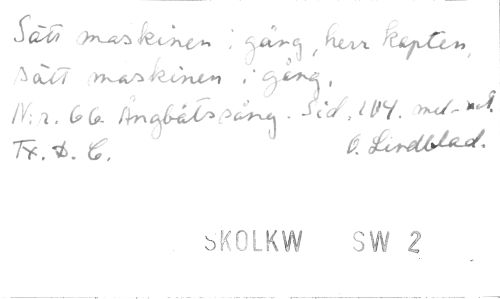 Sätt maskinen i gång, herr kapten,
sätt maskinen i gång.
N:r. 66. Ångbåtssång. Sid. 104. mel-
Tx. D. C. O. Lindblad.
SKOLKW SW 2